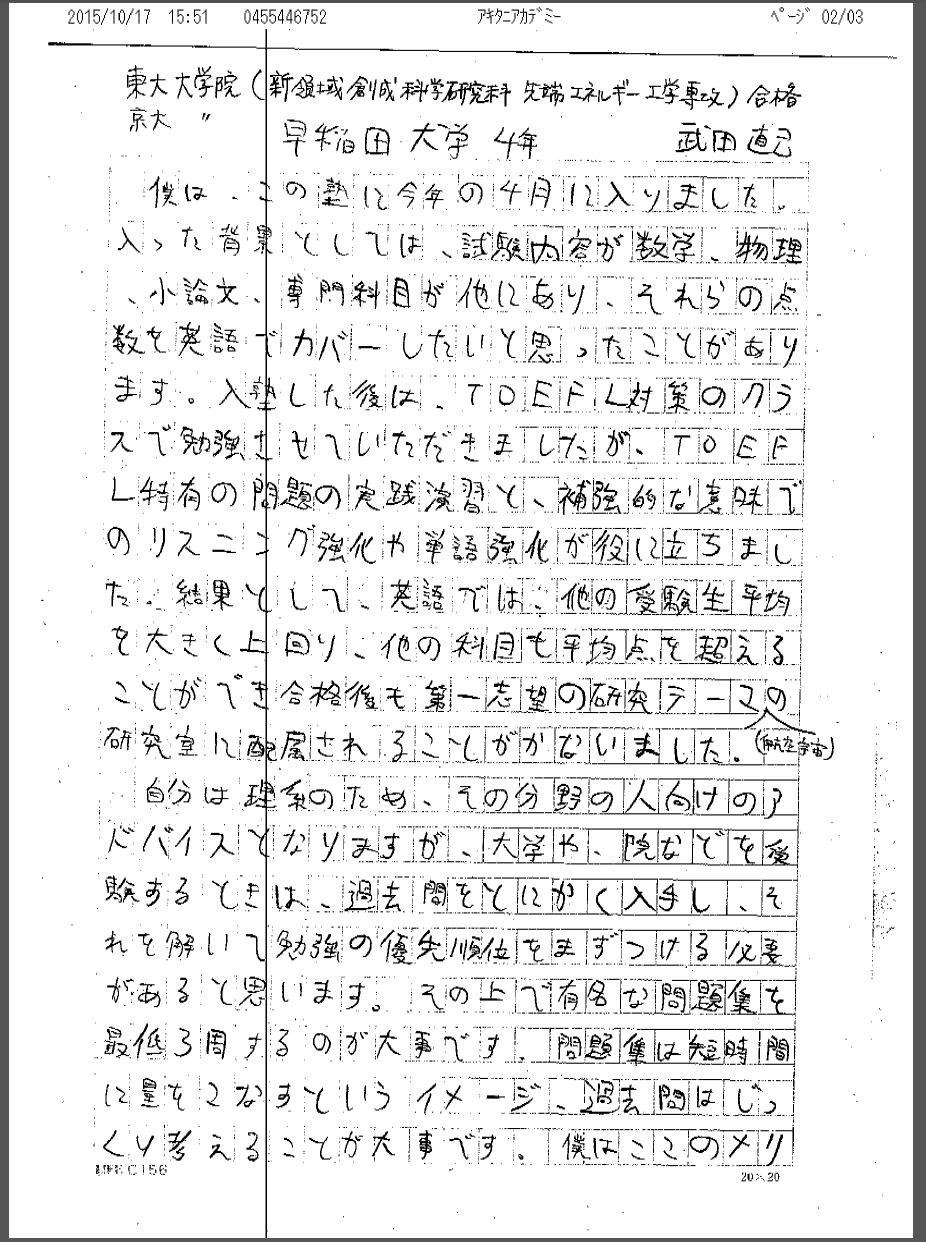 2015/10/17 15:51 0455446752 アキタニアカデミー ページ 02/03
東大大学院(新領域創成科学研究科 先端エネルギー工学専攻)合格
京大 〃
早稲田大学 4年 武田直己
僕は、この塾に今年の4月に入りました。
入った背景としては、試験内容が数学、物理
、小論文、専門科目が他にあり、それらの点
数を英語でカバーしたいと思ったことがあり
ます。入塾した後は、TOEFL対策のクラ
スで勉強させていただきましたが、TOEF
L特有の問題の実践演習と、補強的な意味で
のリスニング強化や単語強化が役に立ちまし
た。結果として、英語では、他の受験生平均
を大きく上回り、他の科目も平均点を超える
ことができ合格後も第一志望の研究テーマの
(航空宇宙)
研究室に配属されることがかないました。
自分は理系のため、その分野の人向けのア
ドバイスとなりますが、大学や、院などを受
験するときは、過去問をとにかく入手し、そ
れを解いて勉強の優先順位をまずつける必要
があると思います。その上で有名な問題集を
最低3周するのが大事です。問題集は短時間
に量をこなすというイメージ、過去問はじっ
くり考えることが大事です。僕はここのメリ
20×20